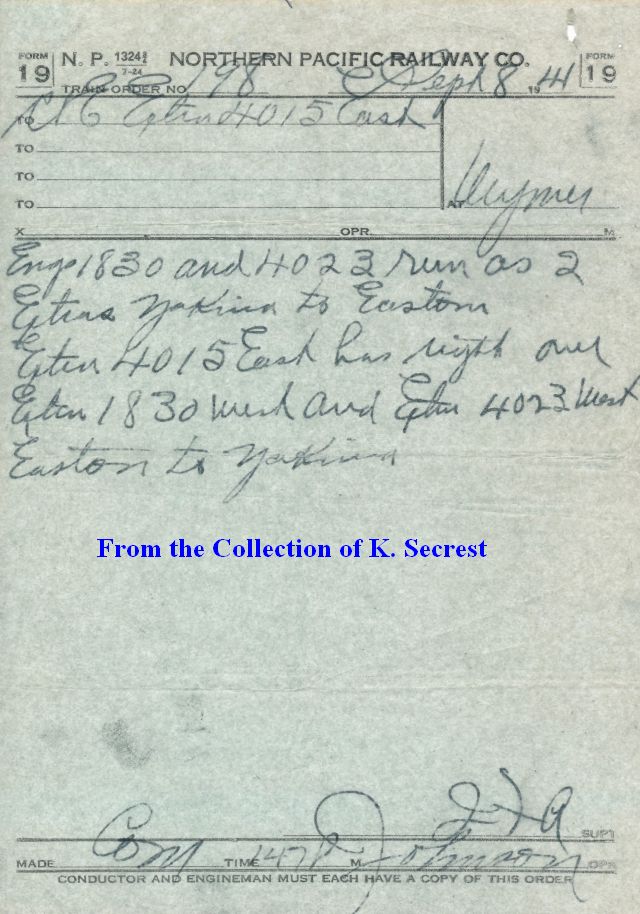 FORM 19 N. P. 1324½ 7-24 NORTHERN PACIFIC RAILWAY CO. FORM 19
TRAIN ORDER NO. 198 Sept 8 1941
TO C&E Extra 4015 East
TO
TO
TO AT Wymer
X OPR. M
Engs 1830 and 4023 run as 2
Extras Yakima to Easton
Extra 4015 East has right over
Extra 1830 West and Extra 4023 West
Easton to Yakima
From the Collection of K. Secrest
JTA SUPT
MADE Com TIME 147P M Johnson OPR.
CONDUCTOR AND ENGINEMAN MUST EACH HAVE A COPY OF THIS ORDER